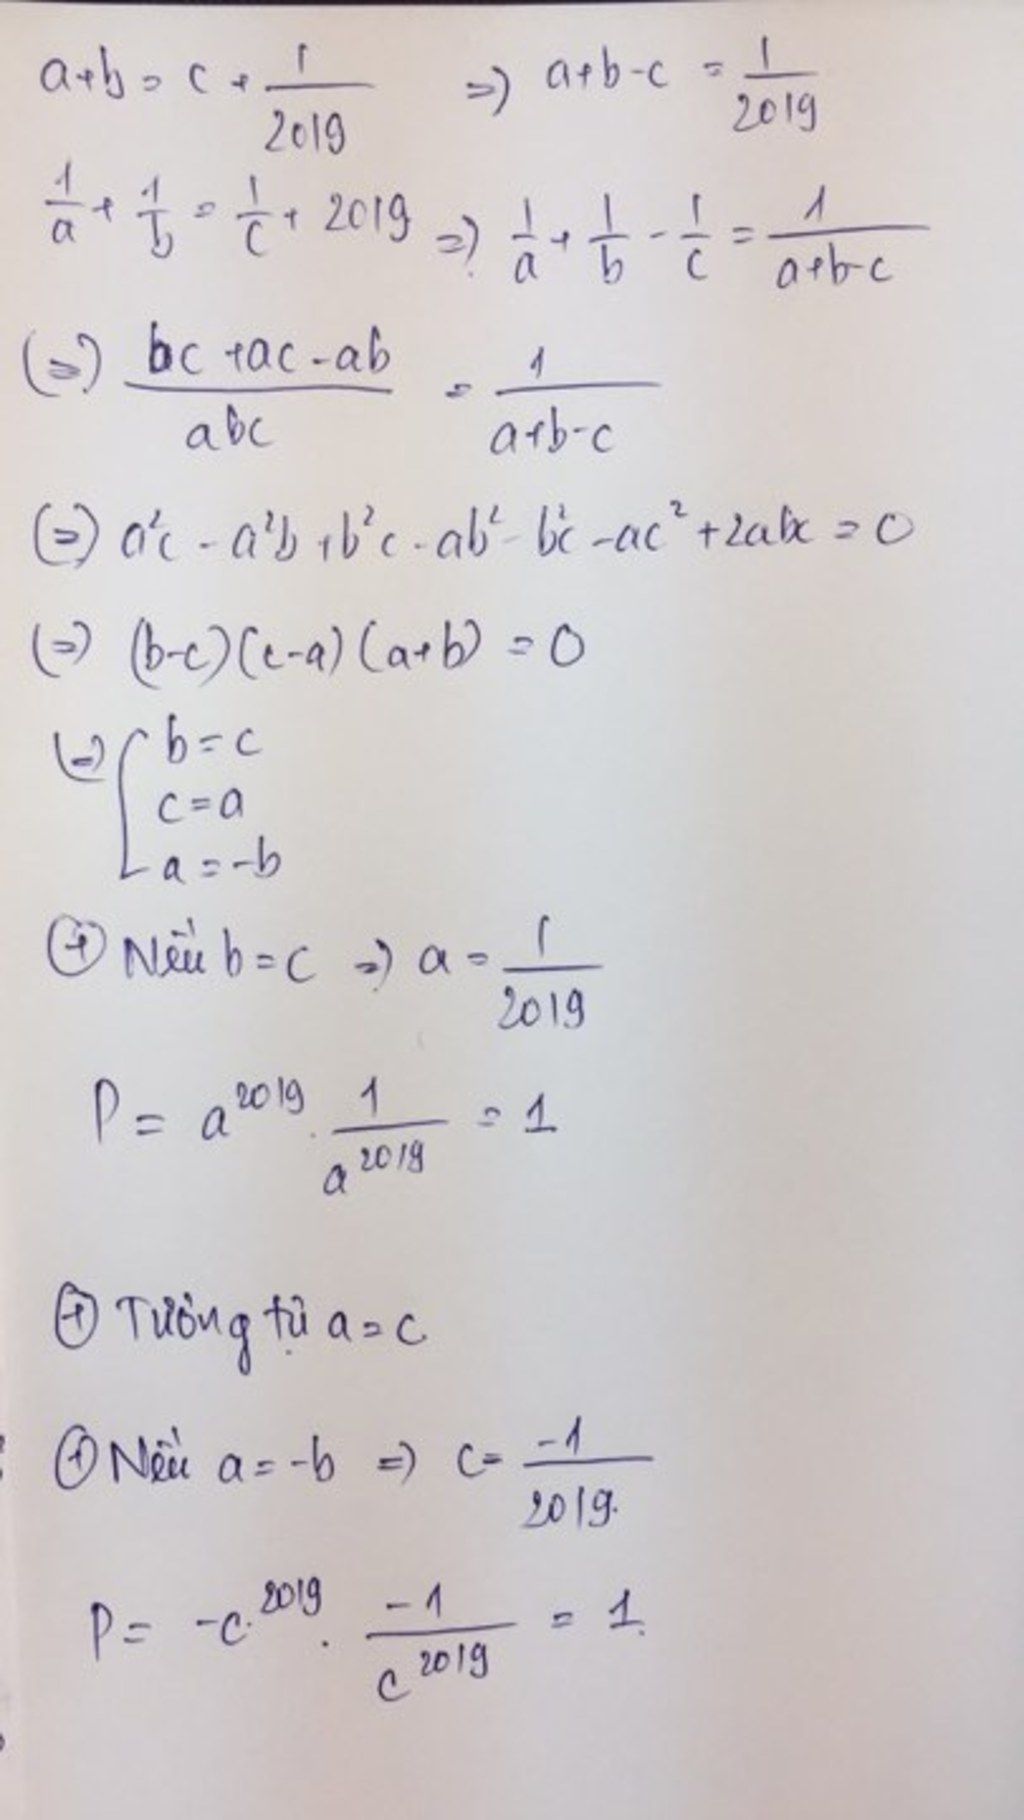 a+b = c + 1/2019 => a+b-c = 1/2019
1/a + 1/b = 1/c + 2019 => 1/a + 1/b - 1/c = 1/(a+b-c)
(=) (bc + ac - ab)/abc = 1/(a+b-c)
(=) a²c - a²b + b²c - ab² - bc² - ac² + 2abc = 0
(=) (b-c)(c-a)(a+b) = 0
(=) [ b = c
c = a
a = -b
⊕ Nếu b = c => a = 1/2019
P = a²⁰¹⁹ . 1/a²⁰¹⁹ = 1
⊕ Tương tự a = c
⊕ Nếu a = -b => c = -1/2019.
P = -c²⁰¹⁹ . -1/c²⁰¹⁹ = 1.